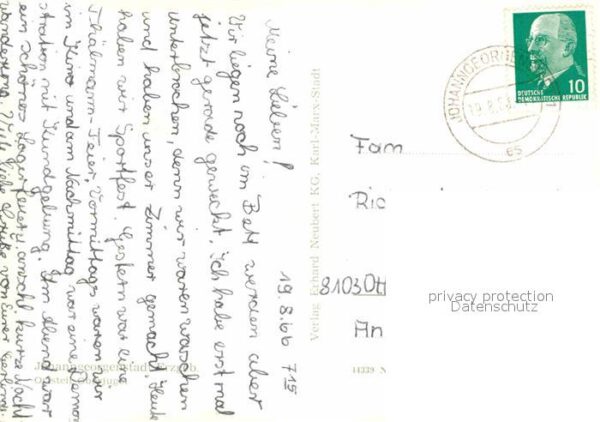 19.8.66 7 15
Meine Lieben!
Wir liegen noch im Bett werden aber
jetzt gerade geweckt. Ich habe erst mal
unterbrochen, denn wir waren waschen
und haben unser Zimmer gemacht. Heute
haben wir Sportfest. Gestern war eine
Thälmann-Feier, Vormittags waren wir
im Kino und am Nachmittag war eine Demon
stration mit Kundgebung. Am Abend war
ein schönes Lagerfeuer u. anschl. kurze Nacht
wanderung. Viele liebe Grüße von Eurer
Johanngeorgenstadt, Erzgeb.
Verlag Erhard Neubert KG, Karl-Marx-Stadt
14339 N
JOHANNGEORGE
19.8.6
10
DEUTSCHE
DEMOKRATISCHE REPUBLIK
Fam
Ric
8103 Ott
An
privacy protection
Datenschutz